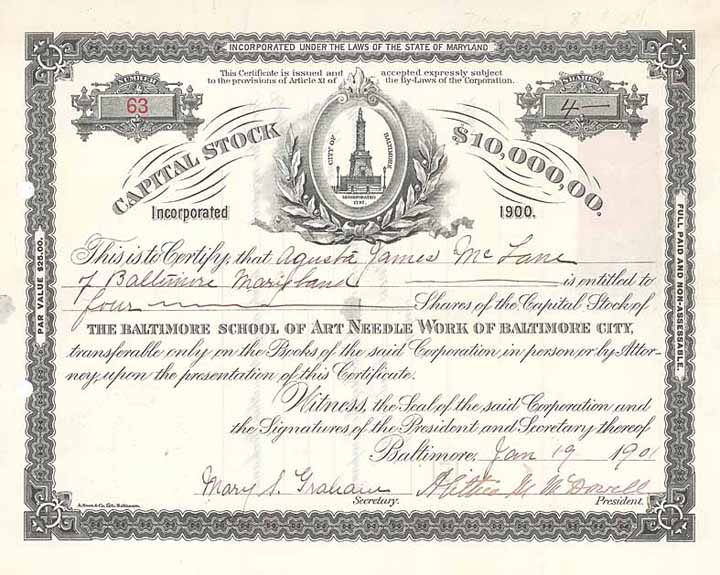 INCORPORATED UNDER THE LAWS OF THE STATE OF MARYLAND
This Certificate is issued and accepted expressly subject
to the provisions of Article XI of the By-Laws of the Corporation.
NUMBER
63
SHARES
4
CAPITAL STOCK $10,000,00.
CITY OF BALTIMORE
INCORPORATED
1797.
Incorporated 1900.
This is to Certify, that Agusta James McLane
of Baltimore Maryland is entitled to
four Shares of the Capital Stock of
THE BALTIMORE SCHOOL OF ART NEEDLE WORK OF BALTIMORE CITY,
transferable only on the Books of the said Corporation, in person, or by Attor-
ney, upon the presentation of this Certificate.
Witness, the Seal of the said Corporation and
the Signatures of the President and Secretary thereof
Baltimore, Jan 19 1901
Mary S. Graham
Secretary.
McDowell
President.
PAR VALUE $25.00.
FULL PAID AND NON-ASSESSABLE.
A. Hoen & Co. Lith. Baltimore.